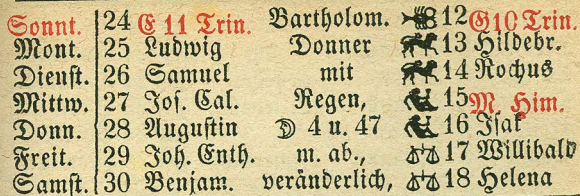 Sonnt. 24 E 11 Trin. Bartholom. 12 G10 Trin.
Mont. 25 Ludwig Donner 13 Hildebr.
Dienſt. 26 Samuel mit 14 Rochus
Mittw. 27 Joſ. Cal. Regen, 15 M. Him.
Donn. 28 Auguſtin ☽ 4 u. 47 16 Iſak
Freit. 29 Joh. Enth. m. ab., 17 Willibald
Samſt. 30 Benjam. veränderlich, 18 Helena